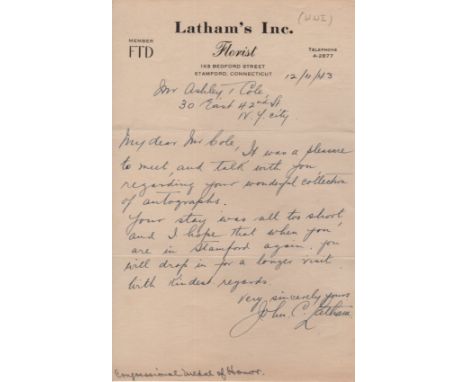 (WWI)
Latham's Inc.
MEMBER
FTD
Florist
TELEPHONE
4-2877
149 BEDFORD STREET
STAMFORD, CONNECTICUT
12/11/43
Mr Ashley T Cole
30 East 42nd St
N.Y. City
My dear Mr Cole,
It was a pleasure
to meet, and talk with you
regarding your wonderful collection
of autographs.
Your stay was all too short
and I hope that when you
are in Stamford again. you
will drop in for a longer visit
With Kindest regards
Very sincerely yours
John C. Latham
Congressional Medal of Honor.